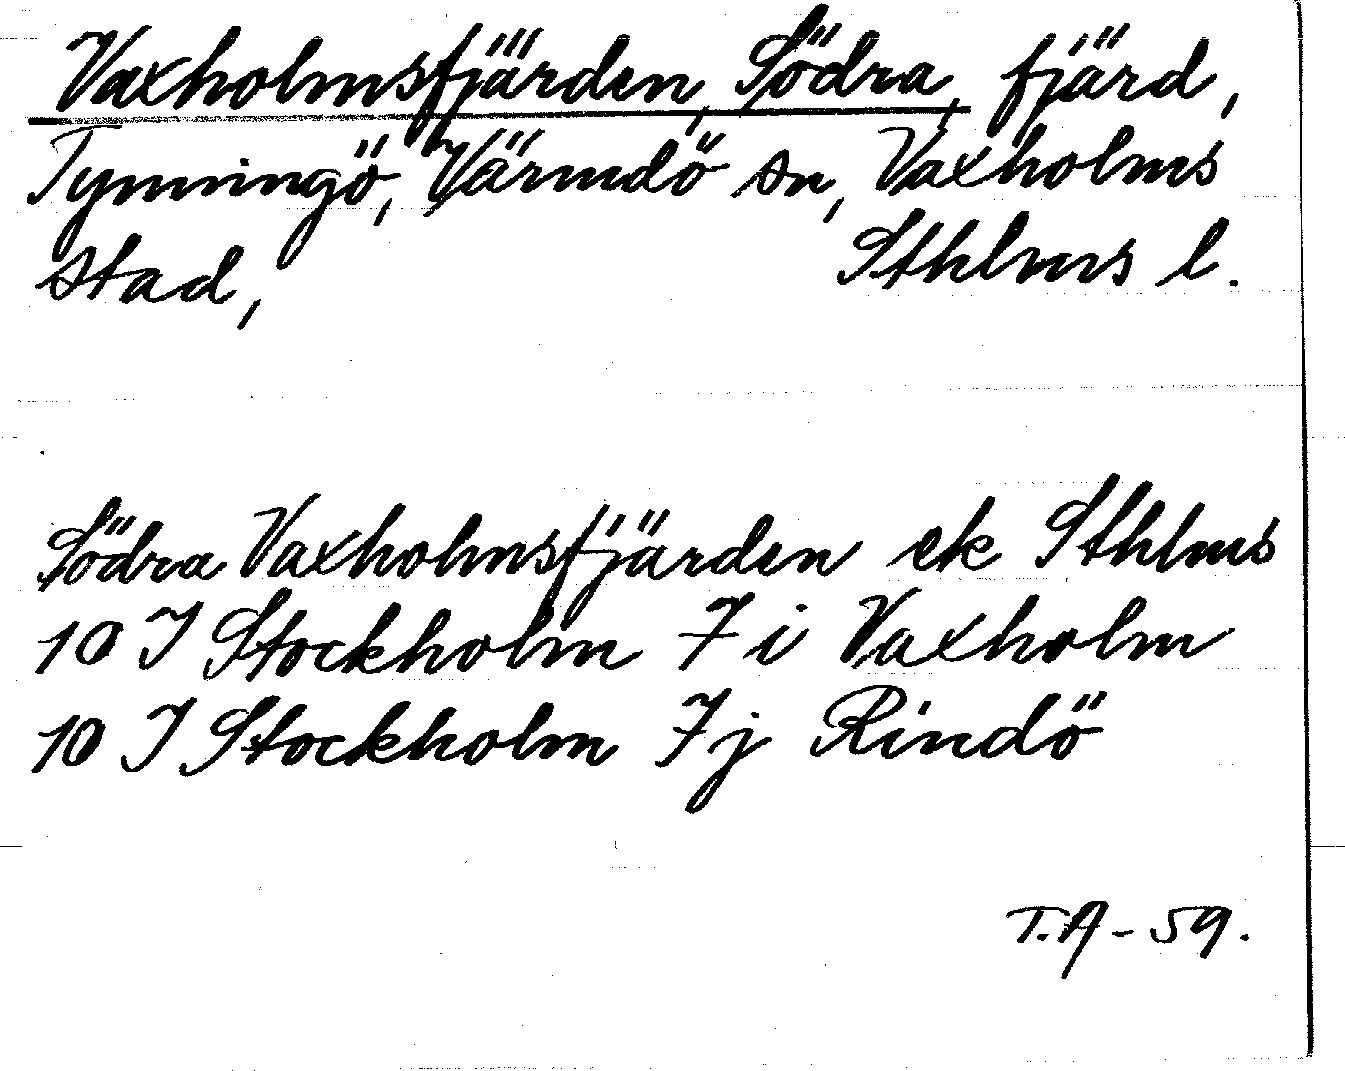 Vaxholmsfjärden, Södra, fjärd,
Tynningö, Värmdö sn, Vaxholms
stad, Sthlms l.
Södra Vaxholmsfjärden ek Sthlms
10 I Stockholm 7 i Vaxholm
10 I Stockholm 7 j Rindö
T.A - 59.